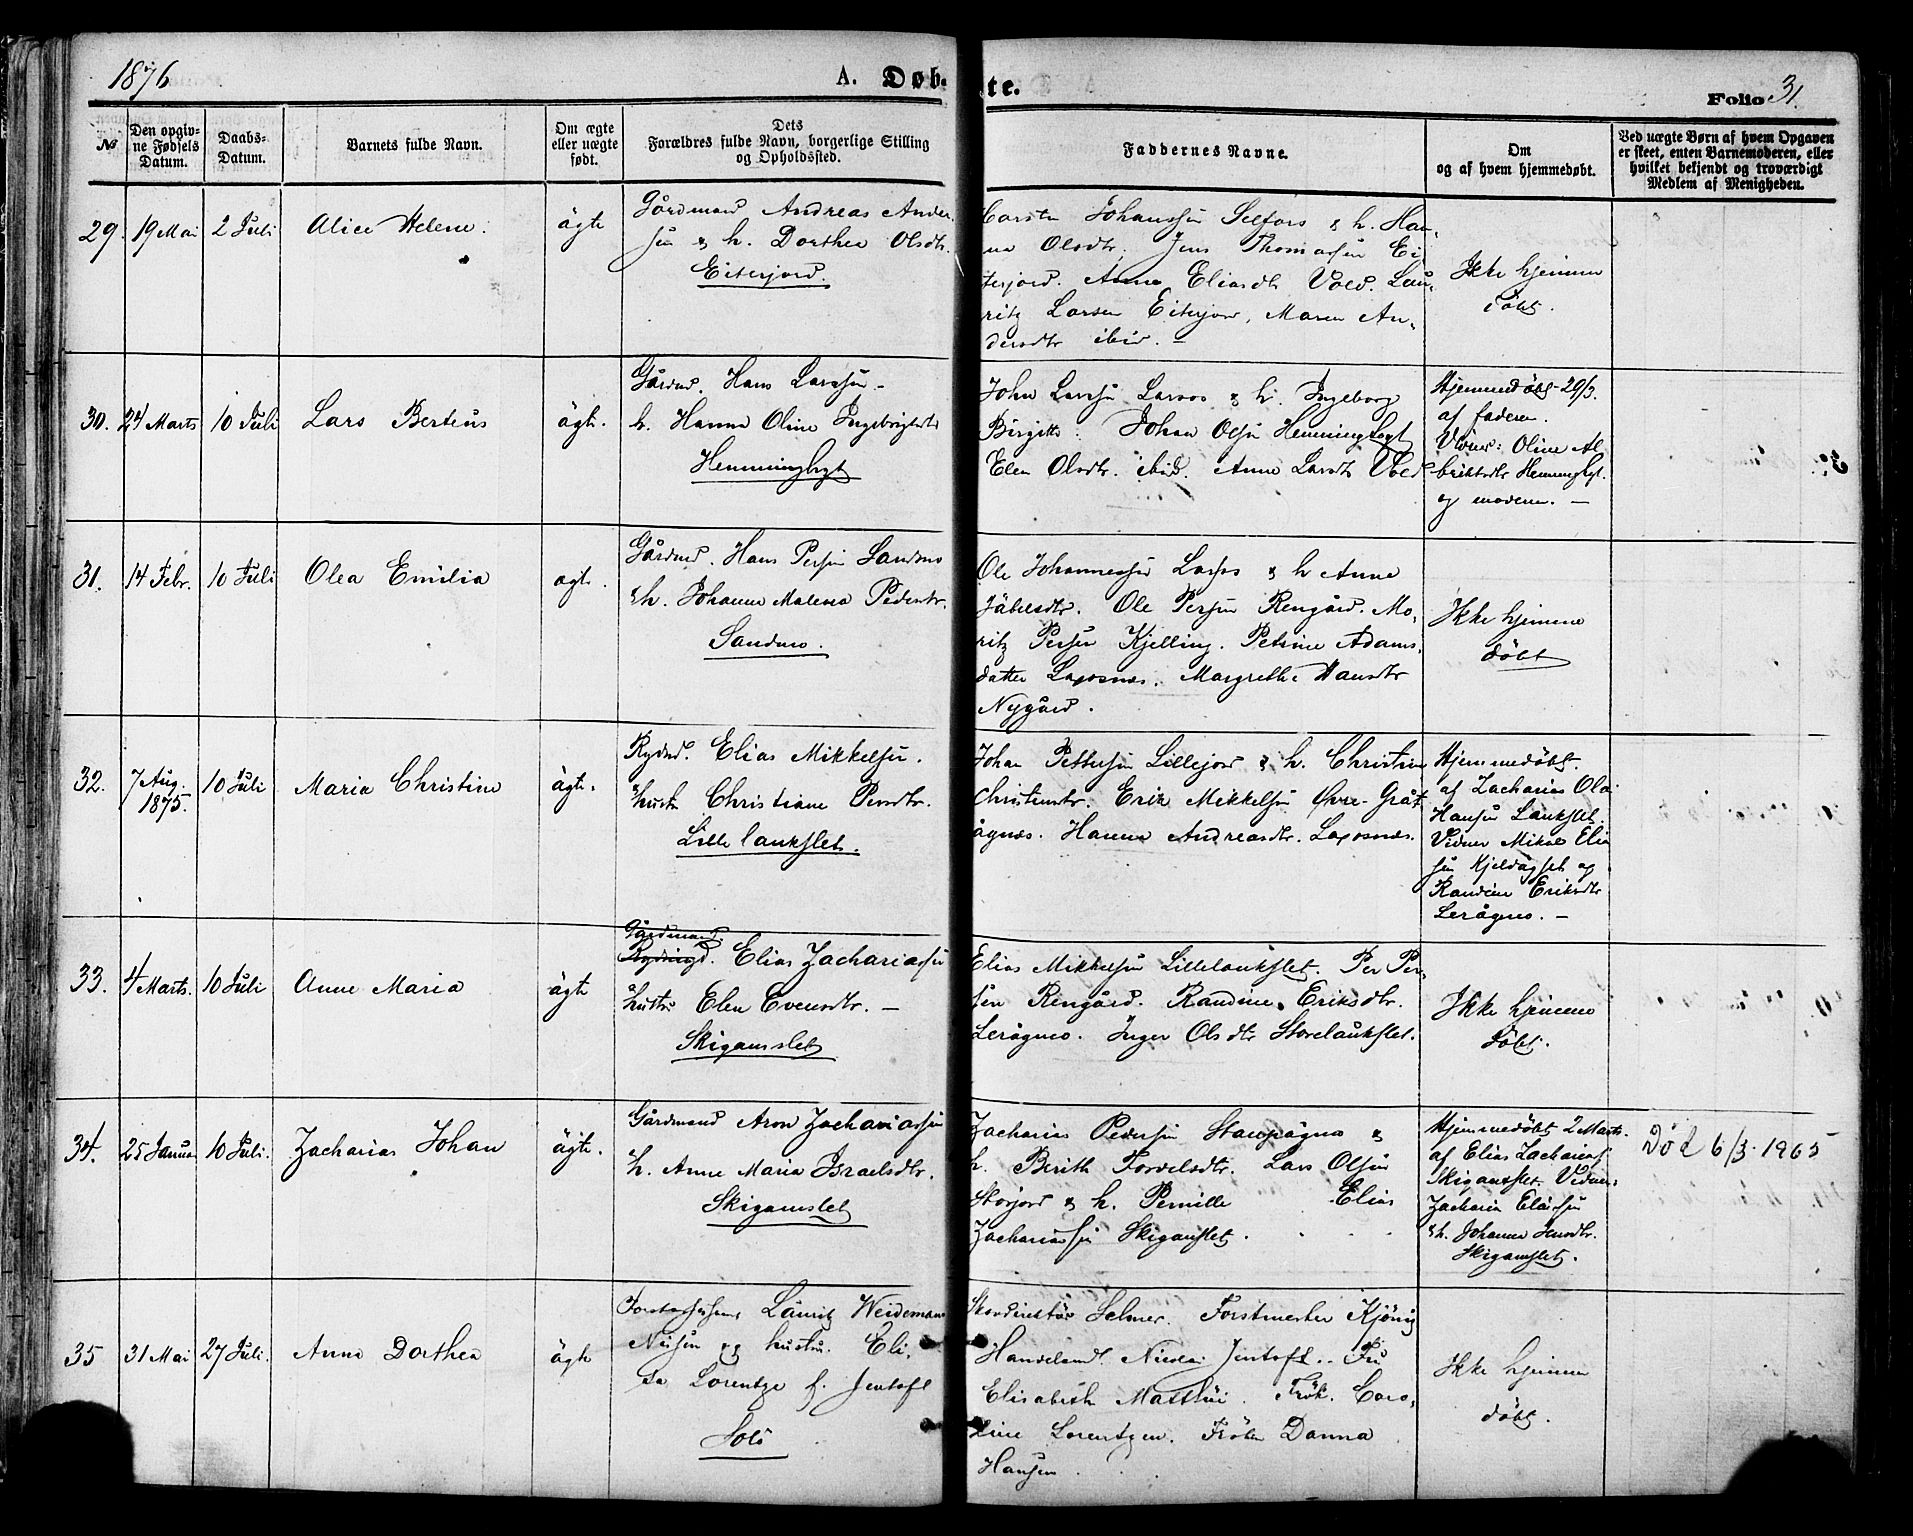 1876
A. Døb-
te.
Folio 31.
No
Den opgiv-
ne Fødsels
Datum.
Daabs-
Datum.
Barnets fulde Navn.
Om ægte
eller uægte
født.
Dets
Forældres fulde Navn, borgerlige Stilling
og Opholdssted.
Faddernes Navne.
Om
og af hvem hjemmedøbt.
Ved uægte Børn af hvem Opgaven
er skeet, enten Barnemoderen, eller
hvilket bekjendt og troværdigt
Medlem af Menigheden.
29. 19 Mai 2 Juli Alice Helene. ägte
Gårdmand Andreas Ander
sen & h. Dorthea Olsdtr.
Eiterjord.
Carsten Johanssen Selfors & h. Han-
na Olsdtr. Jens Thomassen Ei-
terjord. Anne Eliasdtr Vold. Lau-
ritz Larsen Eiterjord, Maren An-
dersdtr ibid. —
Ikke hjemme
døbt.
30. 24 Marts 10 Juli Lars Berteus ägte.
Gårdmd. Hans Larssen -
h. Hanna Oline Ingebrigtsdtr
Hemminghygt
John Larssen Larsos & h. Ingeborg
Birgitte. Johan Olsen Hemminghygt
Elen Olsdtr. ibid. Anne Larsdtr Vold
Hjemmedøbt 29/3.
af faderen.
Vidner: Oline Al
briktsdtr Hemminghygt.
og moderen. —
31. 14 Febr. 10 Juli Olea Emilia agte.
Gårdmd. Hans Persen Sandmo
& h. Johanna Malena Pedersdtr.
Sandmo.
Ole Johannessen Laxos & h Anne
Ole Persen Rengård. Mo-
ritz Persen Kjelling. Petrine Adams
datter Laxosnes. Margrethe Hansdtr
Nygård.
Ikke hjemme
døbt
32. 7 Aug. 1875. 10 Juli Maria Christine ägte.
Rydmd. Elias Mikkelsen.
hustr Christiane Persdtr.
Lille laukslet.
Johan Pettersen Lillejord & h. Christine
Christensdtr. Erik Mikkelsen Øvre-Gråt
ågnæs. Hanna Andreasdtr. Laxosnæs.
Hjemmedøbt.
af Zacharias Ola
Hansen Laukslet.
Vidner Mikal Elia
sen Kjeldågslet og
Randine Eriksdtr
Lerågmo. —
33. 4 Marts. 10 Juli Anne Maria ägte
Gårdmand
Elias Zachariassen
hustru Elen Evensdtr. —
Skigamslet
Elias Mikkelsen Lillelaukslet. Per Per-
sen Rengård. Randine Eriksdtr.
Lerågmo. Inger Olsdtr Storelaukslet.
Ikke hjemme
døbt.
34. 25 Januar 10 Juli. Zacharias Johan ägte.
Gårdmand Aron Zachariassen
h. Anne Maria Israelsdtr.
Skigamslet
Zacharias Pedersen Stampågmo &
h. Berith Torvelsdtr. Lars Olsen
Storjord & h. Pernille Elias
Zachariassen Skigamslet.
Hjemmedøbt 2 Marts.
af Elias Zacharias
Skigamslet. Vidner
Zacharia Eliassen
& h. Johanna Jensdtr.
Skigamslet.
Død 6/3-1965
35 31 Mai 27 Juli. Anna Dorthea ägte
Lauritz Weidemann
Nilsen og hustru. Eli-
se Lorentze f. Jentoft
Solö
Skovdirektör Selmer. Forstmester Kjönig
Handelsmd. Nicolai Jentoft. Fru
Elisabeth Matthie. Frök. Caro-
line Lorentzen. Fröken Danna
Hansen.
Ikke hjemme
döbt.